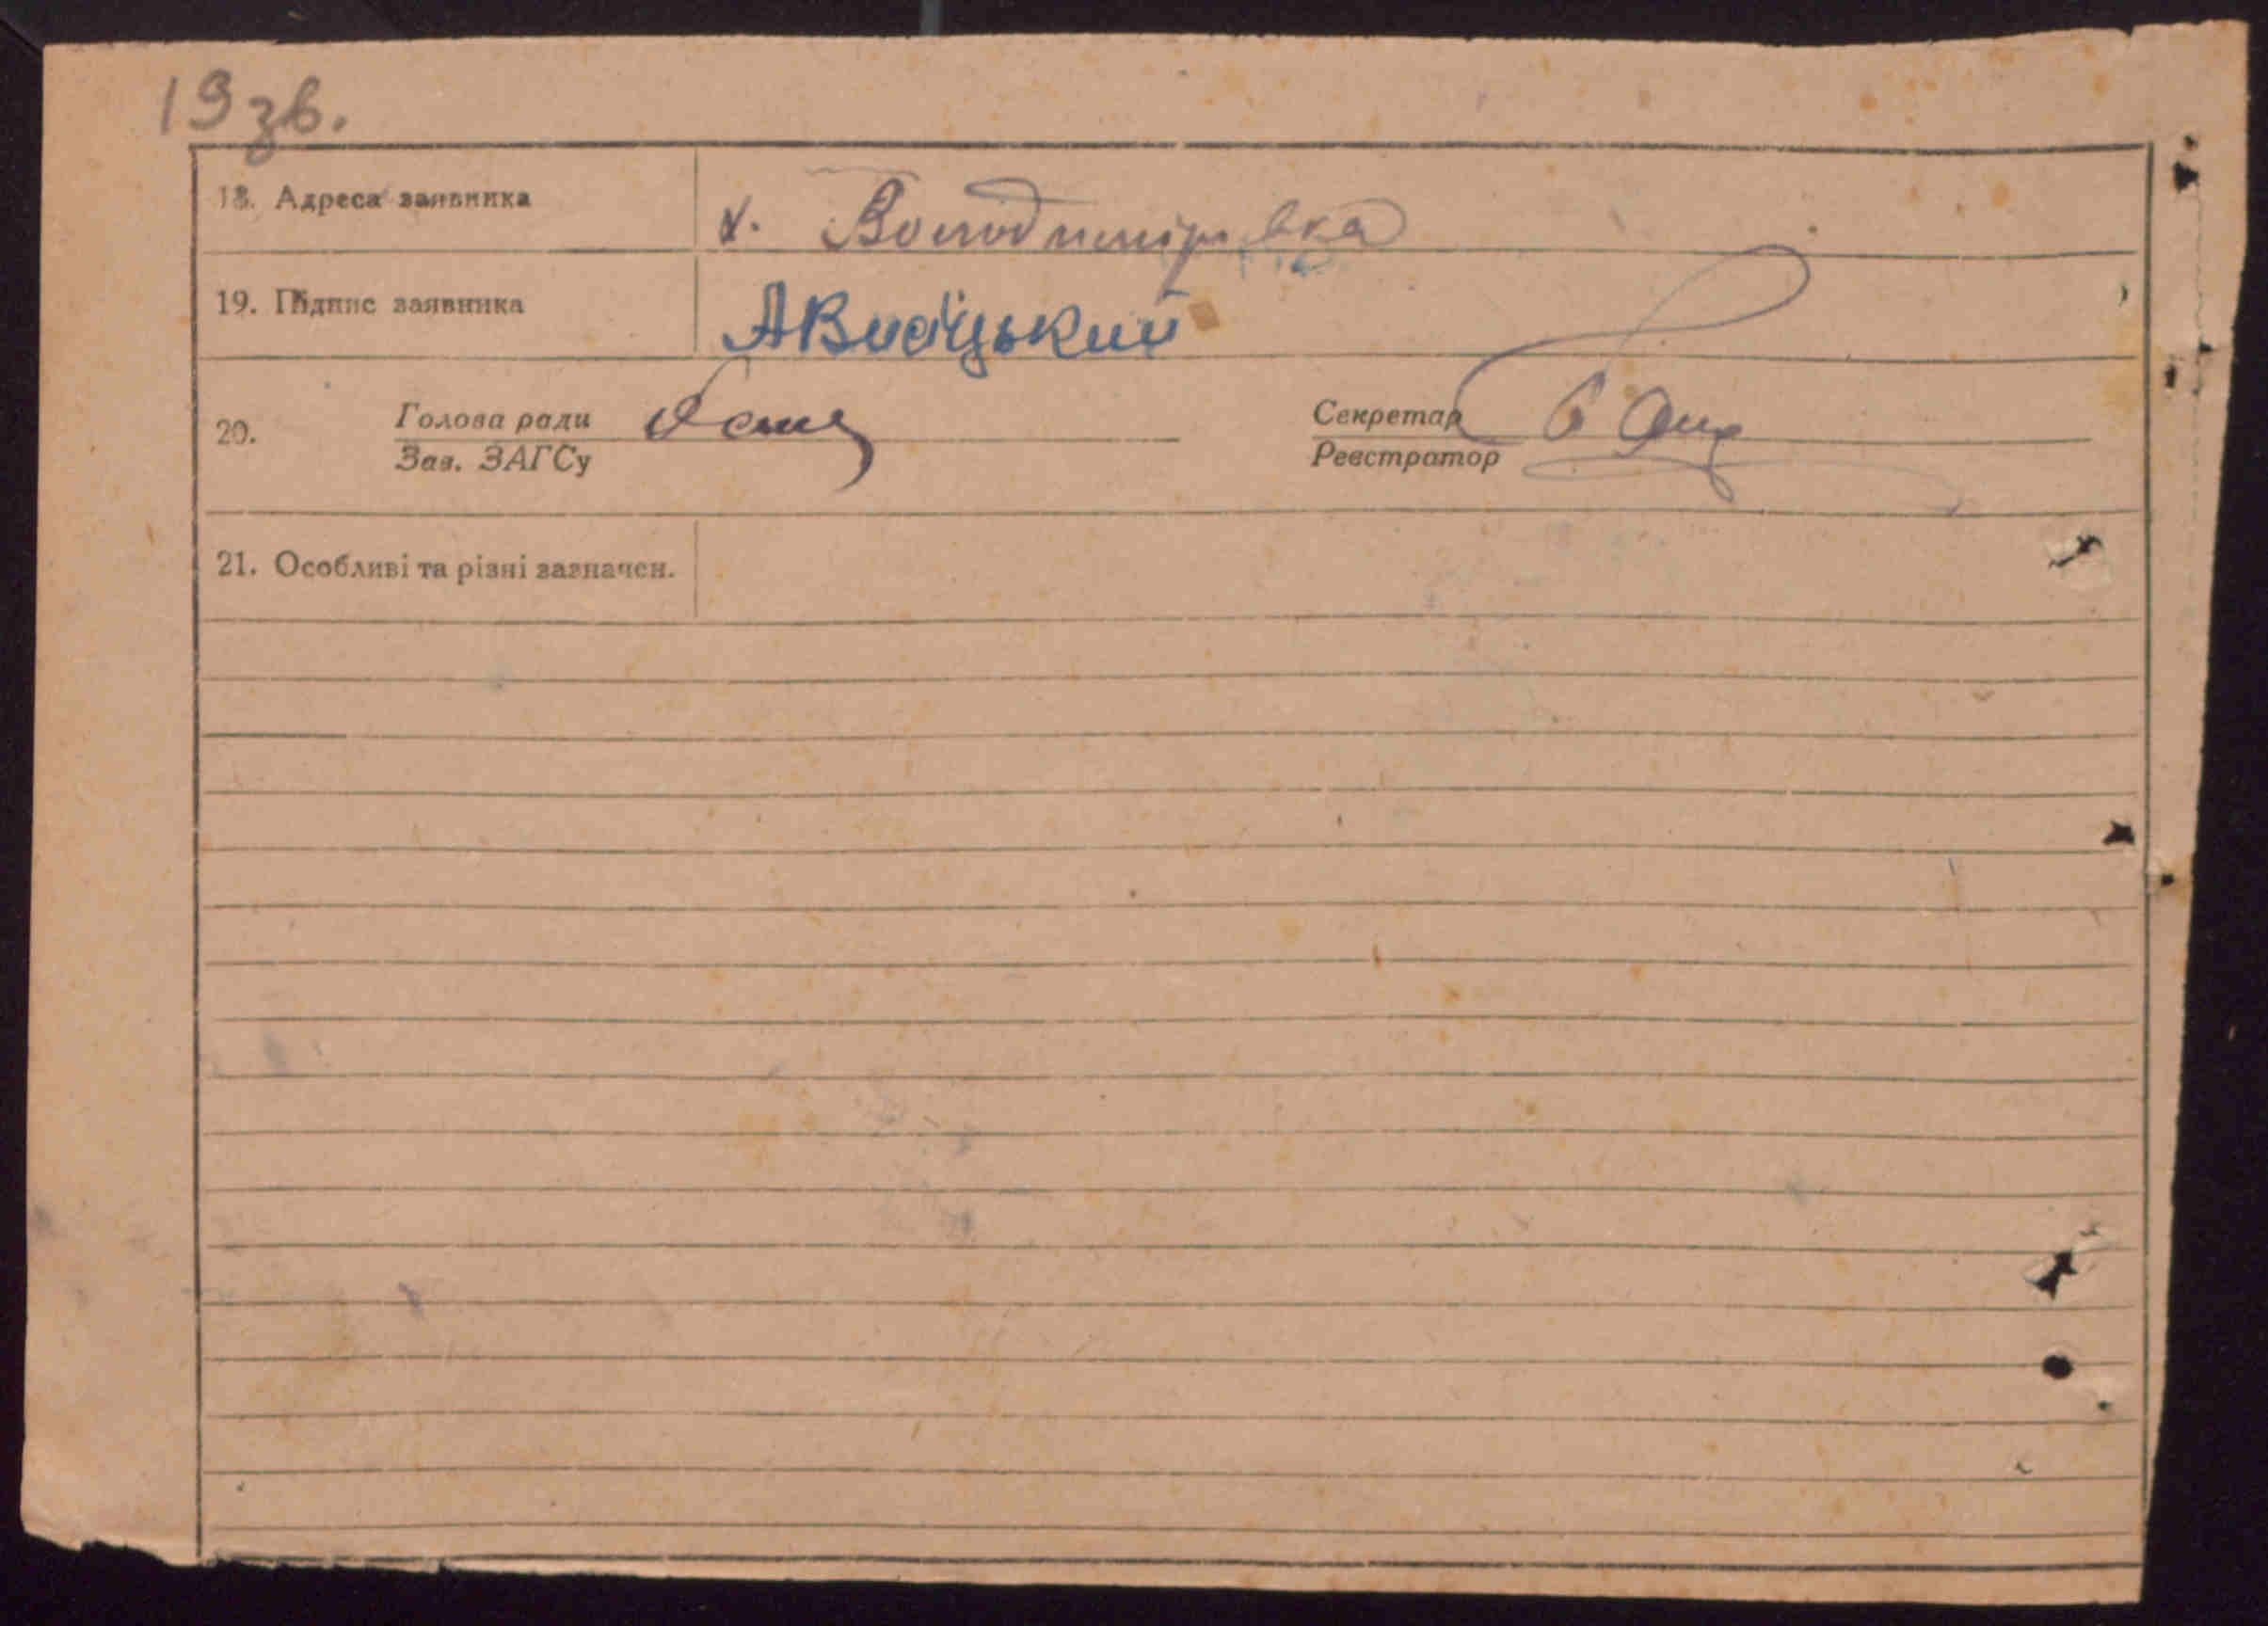 19 зв.
18. Адреса заявника х. Володимирівка
19. Підпис заявника
20. Голова ради Секретар
Зав. ЗАГСу Реєстратор
21. Особливі та різні зазначен.